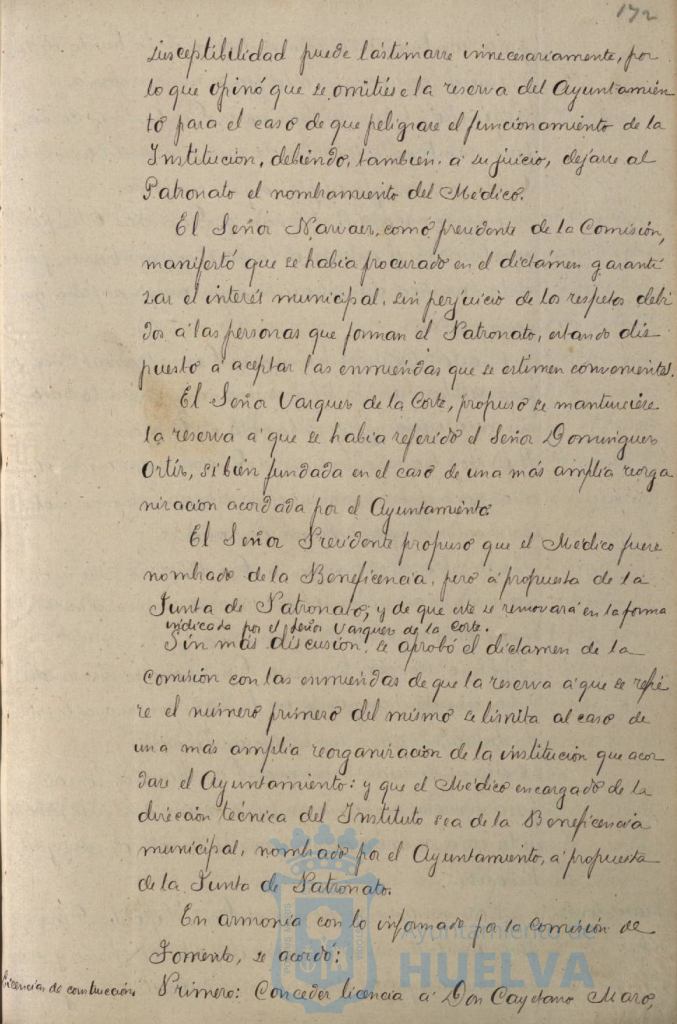 172
susceptibilidad puede lastimarse innecesariamente, por
lo que opinó que se omitiése la reserva del Ayuntamien
to para el caso de que peligrase el funcionamiento de la
Institucion, debiendo, tambien, á su juicio, dejarse al
Patronato el nombramiento del Médico.
El Señor Narvaez, como presidente de la Comisión,
manifestó que se habia procurado en el dictámen garanti
zar el interés municipal, sin perjuicio de los respetos debi
dos á las personas que forman el Patronato, estando dis
puesto á aceptar las enmiendas que se estimen convenientes.
El Señor Vazquez de la Corte, propuso se mantuviése
la reserva á que se habia referido el Señor Dominguez
Ortiz, si bien fundada en el caso de una más amplia reorga
nizacion acordada por el Ayuntamiento.
El Señor Presidente propuso que el Médico fuese
nombrado de la Beneficencia, pero á propuesta de la
Junta de Patronato, y de que este se removerá en la forma
indicada por el Señor Vazquez de la Corte.
Sin más discusion, se aprobó el dictamen de la
Comisión con las enmiendas de que la reserva á que se refie
re el número primero del mismo se limita al caso de
una más amplia reorganizacion de la institucion que acor
dase el Ayuntamiento: y que el Médico encargado de la
direccion técnica del Instituto sea de la Beneficencia
municipal, nombrado por el Ayuntamiento, á propuesta
de la Junta de Patronato.
En armonia con lo informado por la Comisión de
Fomento, se acordó:
Licencias de construccion. Primero: Conceder licencia á Don Cayetano Maro,
Ayuntamiento de
HUELVA